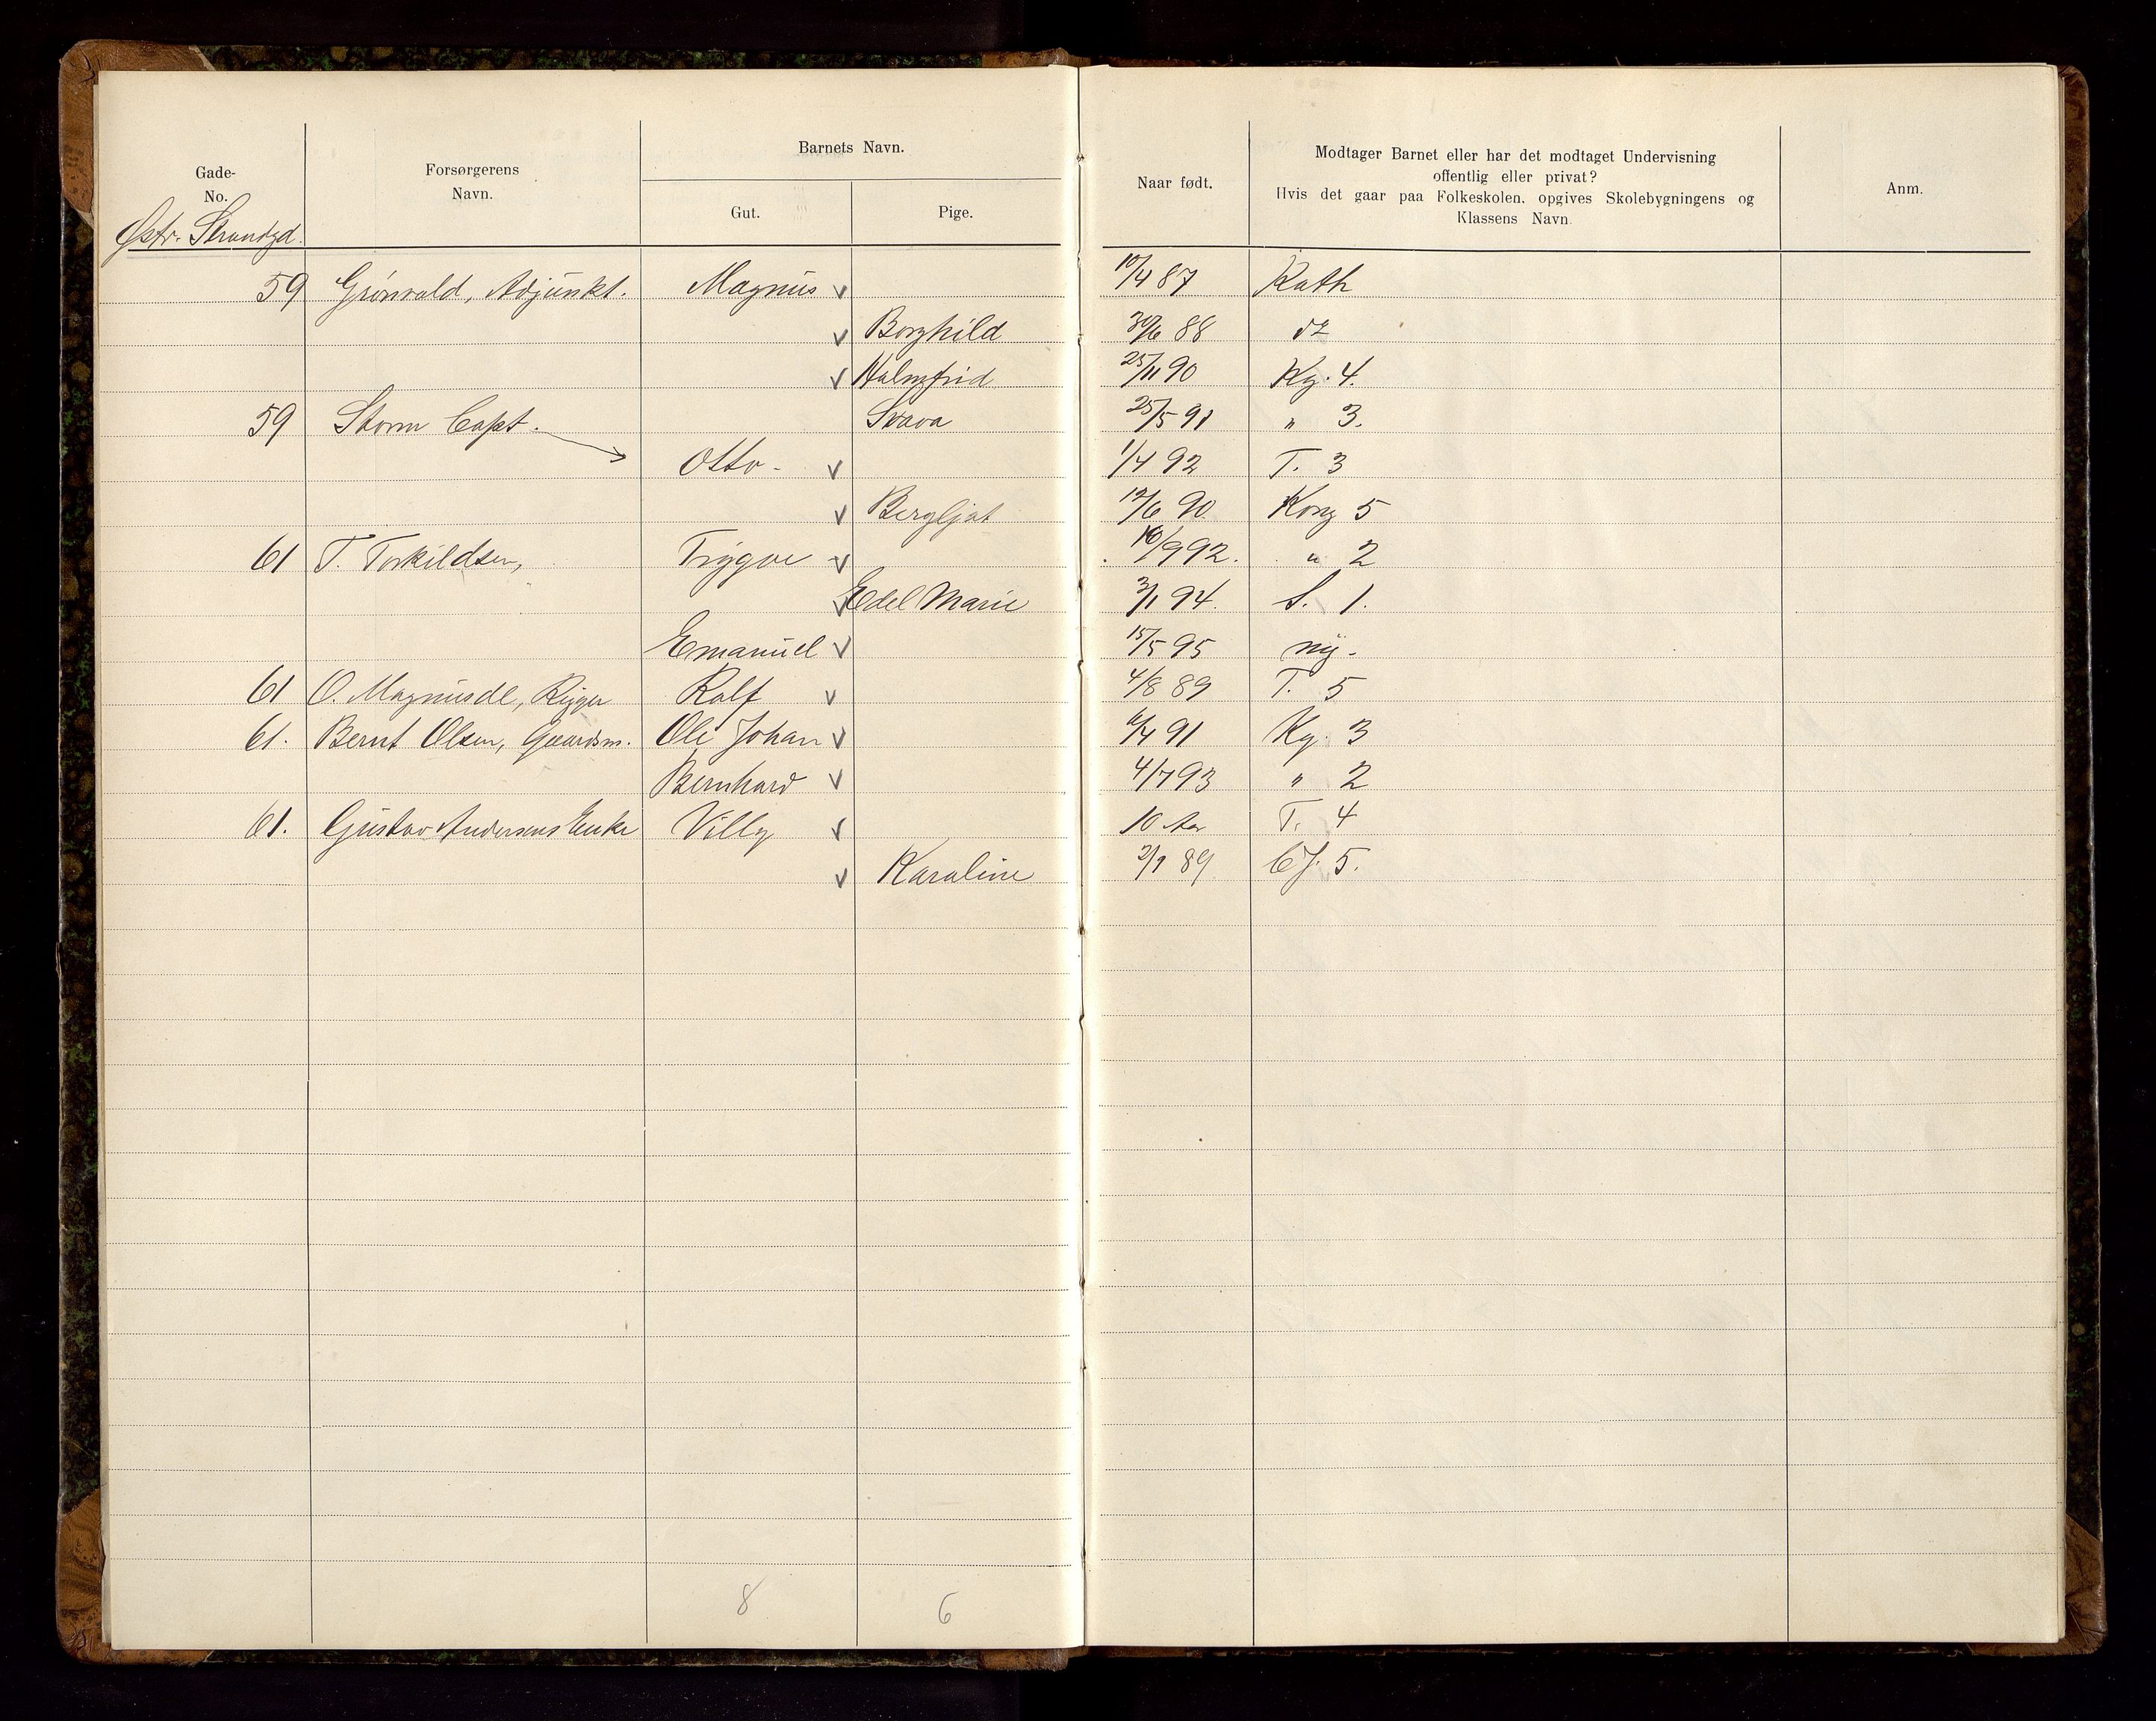 Gade-
No.
Forsørgerens
Navn.
Barnets Navn.
Gut.
Pige.
Naar født.
Modtager Barnet eller har det modtaget Undervisning
offentlig eller privat?
Hvis det gaar paa Folkeskolen, opgives Skolebygningens og
Klassens Navn
Anm.
Østr. Strandgd.
59 Grönvold, Adjünkt. Magnus v 10/4 87 Kath
v Borghild 30/6 88 do
v Holmfrid 25/11 90 Kg. 4.
59 Storm Capt. Svava 25/5 91 " 3.
Otto - v 1/4 92 T. 3
v Bergljot 12/6 90 Kong 5
61 T. Torkildsen, Trygve v 10/9 92. " 2
v Edel Marie 3/1 94. S. 1.
Emanuel v 15/5 95 ny.
61 O. Magnusdl, Rigger Ralf v 4/8 89 T. 5
61. Bernt Olsen, Gaardsm. Ole Johan v 6/4 91 Kg. 3
Bernhard v 4/7 93 " 2
61. Gustav Andersens Enke Villy v 10 Aar T. 4
v Karoline 2/1 89 5.
8 6